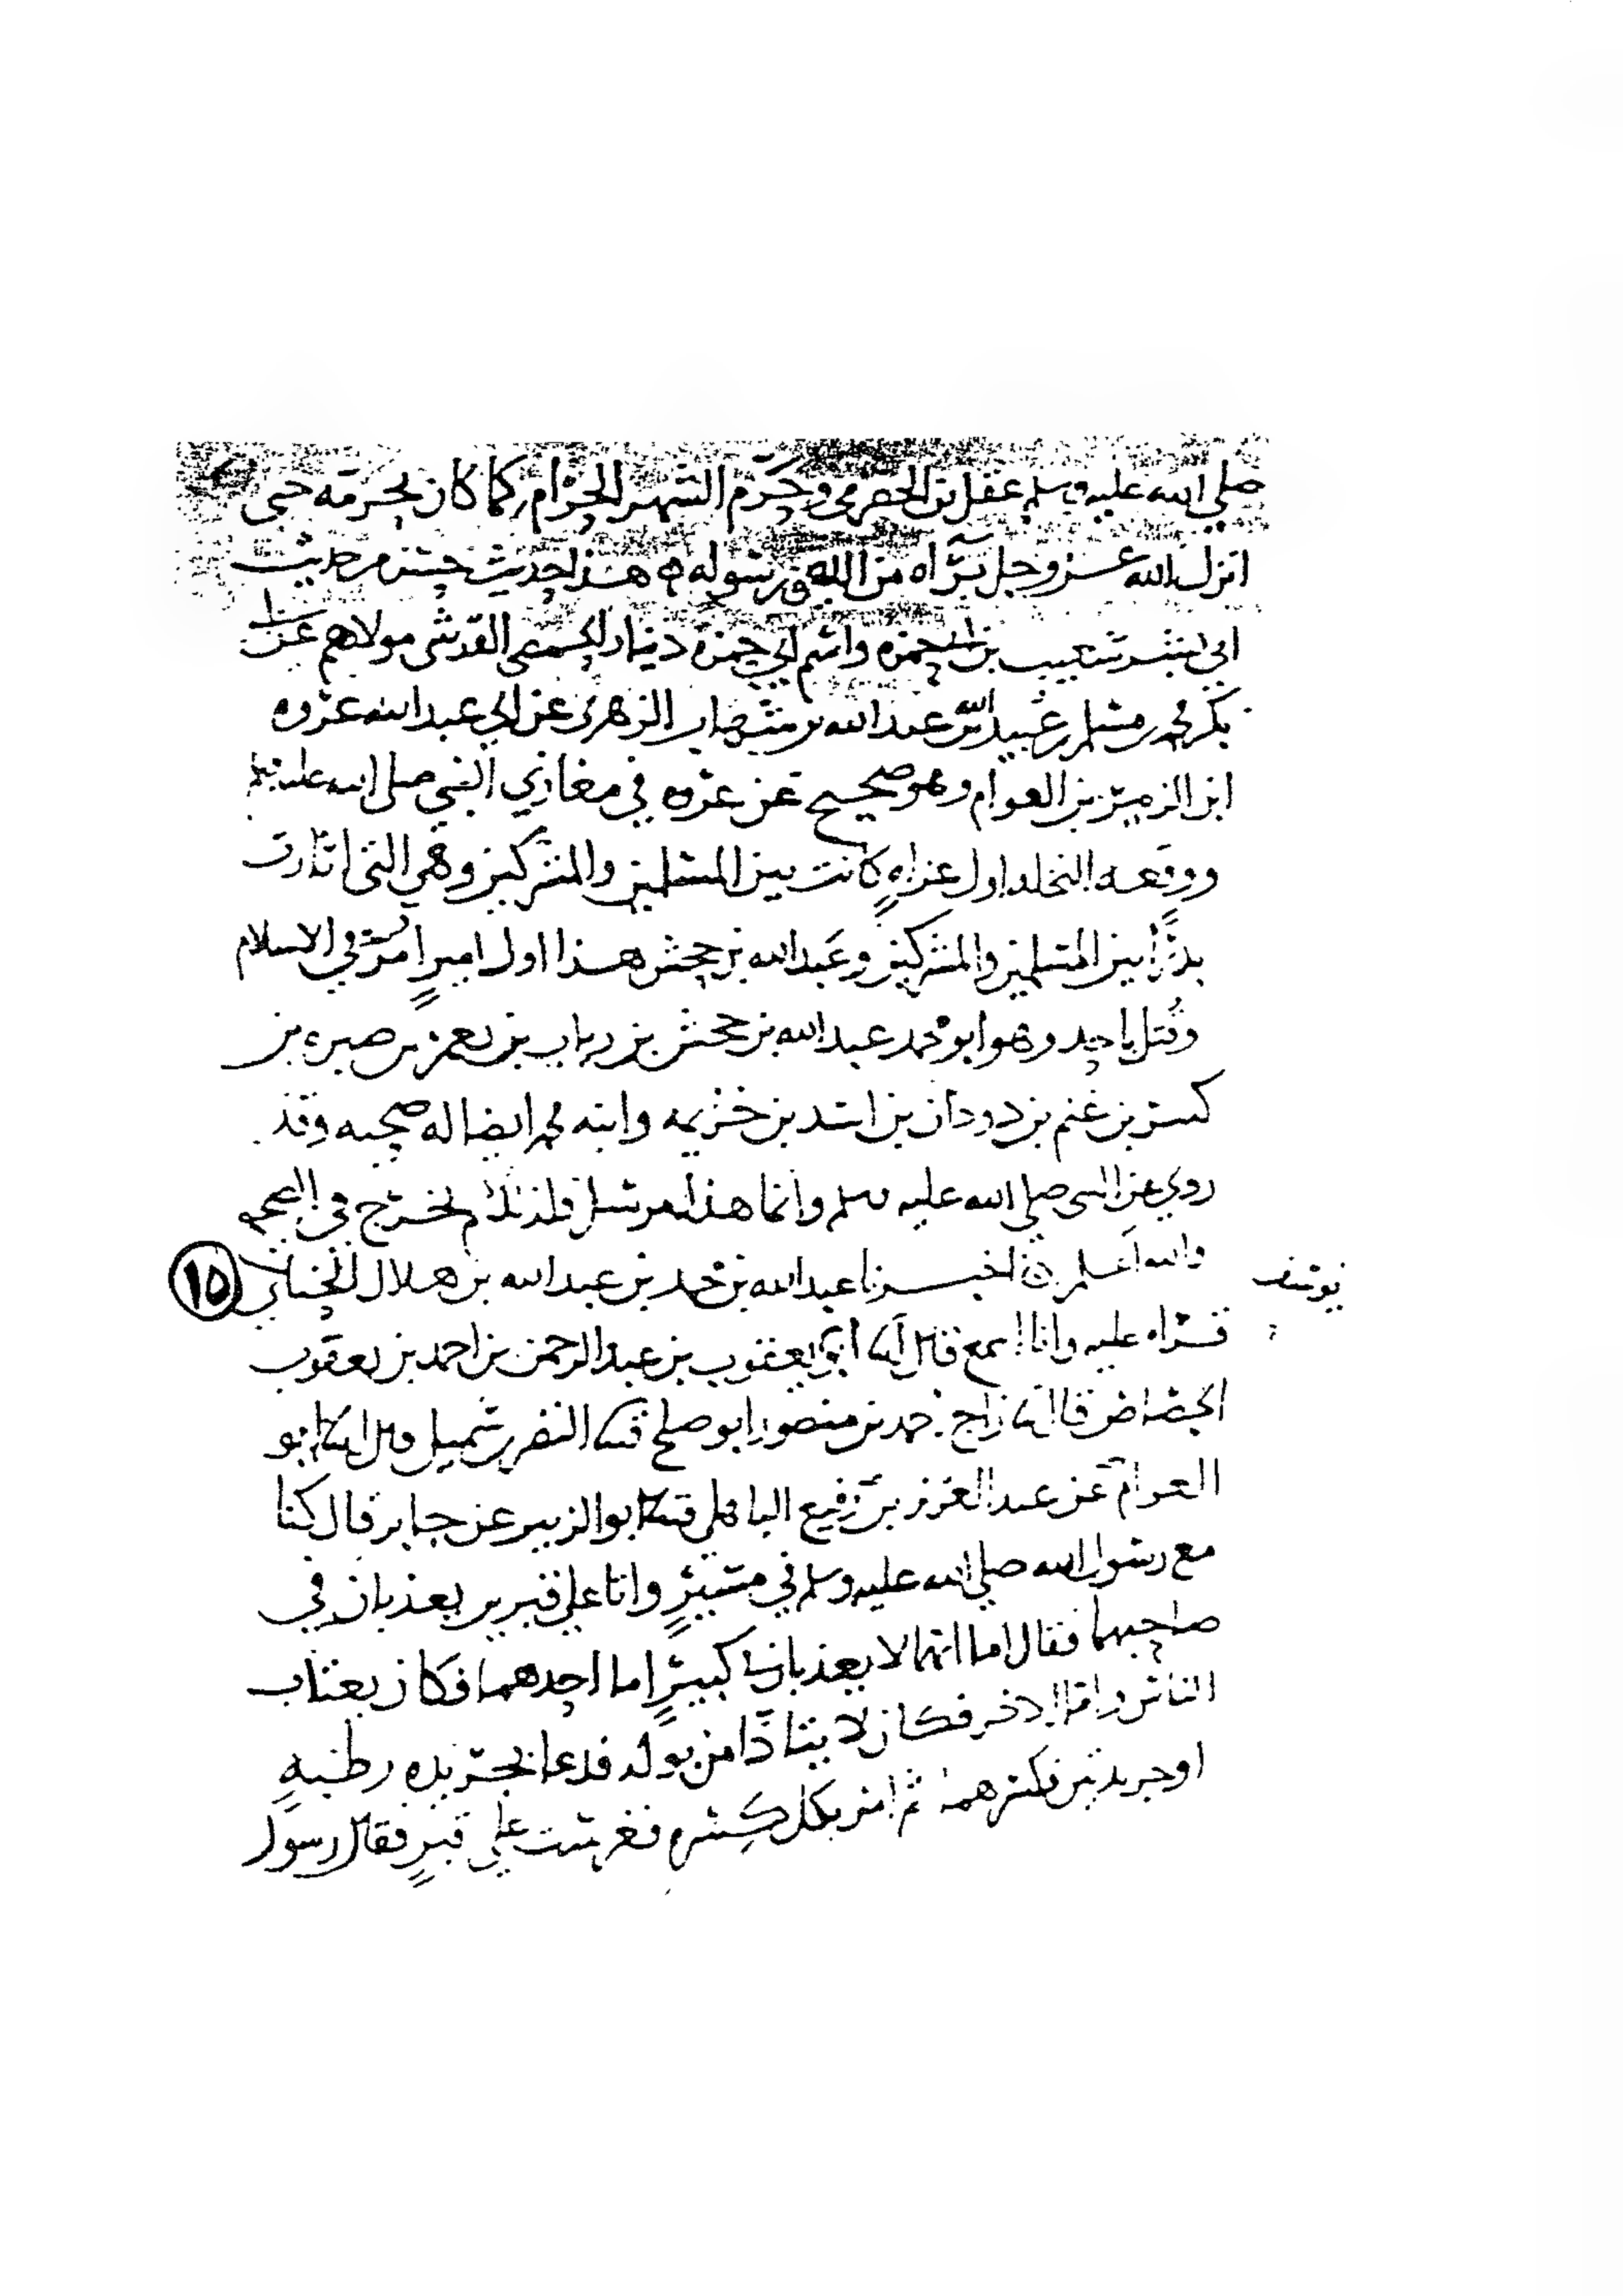 صلى الله عليه وسلم عقل بن الحضرمي وحرم الشهر الحرام كما كان يحرمه حتى
انزل الله عز وجل براه من الله ورسوله هذا حديث حسن من حديث
ابي بشر شعيب بن ابي حمزه واسم ابي حمزه دينار الحمصي القرشي مولاهم عن ابي
بكر محمد بن مسلم بن عبيد الله بن عبد الله بن شهاب الزهري عن ابي عبد الله عروه
ابن الزبير بن العوام وهو صحيح عن عروه في مغازي النبي صلى الله عليه وسلم
ووقعه النخله اول غزاه كانت بين المسلمين والمشركين وهي التي اثارت
بدرا بين المسلمين والمشركين وعبد الله بن جحش هذا اول امير امر في الاسلام
وقتل باحد وهو ابو محمد عبد الله بن جحش بن رياب بن يعمر بن صبره بن
كبير بن غنم بن دودان بن اسد بن خزيمه وابنه محمد ايضا له صحبه وقد
روي عن النبي صلى الله عليه وسلم وانما هذا مرسل فلذلك لم يخرج في الصحيح
والله اعلم اخبرنا عبد الله بن محمد بن عبد الله بن هلال الحنائي
١٥
يوسف
قراه عليه وانا اسمع قال ابنا ابو يعقوب بن عبد الرحمن بن احمد بن يعقوب
الجصاص قال ابنا زاج احمد بن منصور ابو صلح قثنا النضر بن شميل قال ابنا ابو
العوام عن عبد العزيز بن رفيع الباهلي قثنا ابو الزبير عن جابر قال كنا
مع رسول الله صلى الله عليه وسلم في مسير واتا على قبرين يعذبان في
صاحبهما فقال اما انهما لا يعذبان في كبير اما احدهما فكان يغتاب
الناس واما الاخر فكان لا يتاذا من بوله فدعا بجريده رطبه
او جريدتين فكسرهما ثم امر بكل كسره فغرست على قبر فقال رسول